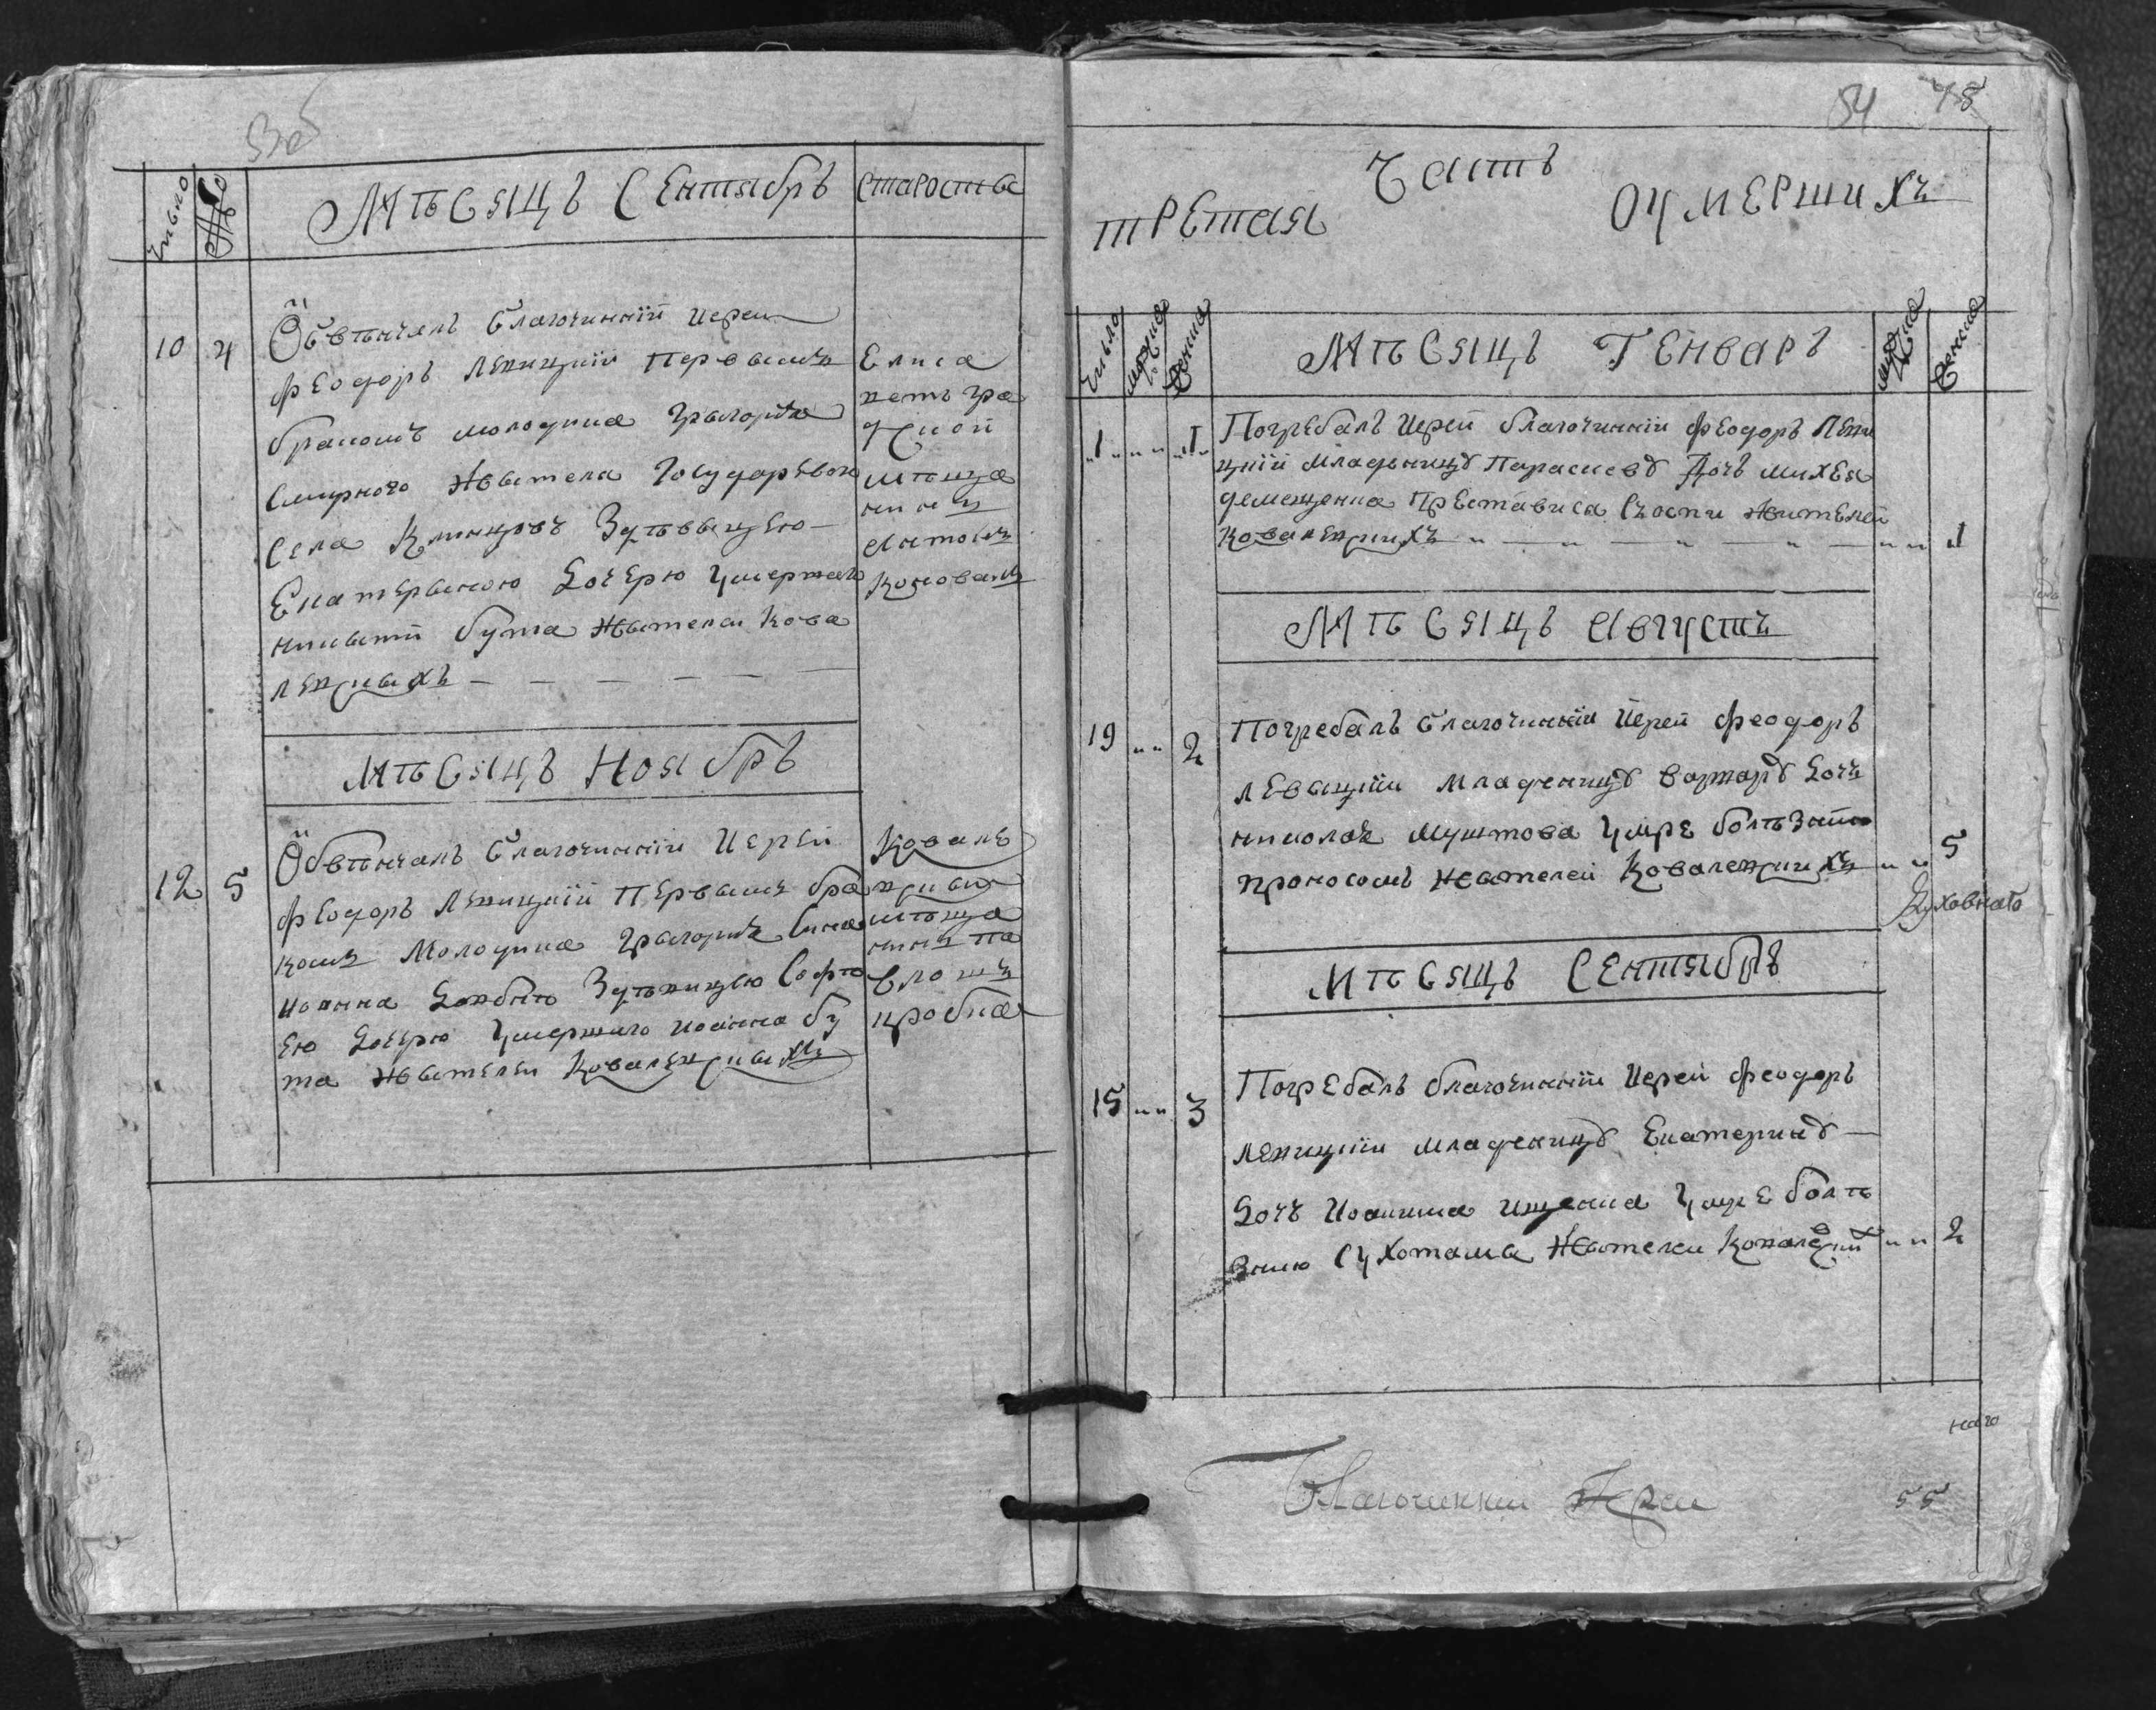 Число
Мѣсяцъ Сентябрь
староства
10 4
Обвѣнчалъ благочинній Иерей
Феодоръ Левицкій первымъ
бракомъ молодика Григорія
Смирного жителя Государевого
села Клинцовъ З дѣвыцею
Екатерыною дочерю умершаго
бута жытелей Кова
левскыхъ
Елиса
ветъ гра
дской
мѣща
нинъ
Антонъ
Мѣсяцъ Ноябрь
12 5
Обвѣнчалъ благочинній Иерей
Феодоръ Левицкій первымъ бра
комъ Молодика Григорія сина
иоанна З дѣвицею Софі
ею дочерю умершаго иоанна бу
та жытелей Ковалевскыхъ
Ковале
вскый
мѣща
нинъ па
вло
84
Часть
третая
Оумершихъ
Число
мужска
женска
Мѣсяцъ Генваръ
мужска
женска
1 1
Погребалъ Иерей благочинній Феодоръ Леви
цкій младеницу Параскеву дочь михея
демещенка Преставися Съ оспи жителей
Ковалевскихъ 1
Мѣсяцъ Августъ
19 2
Погребалъ благочинній Иерей Феодоръ
Левицкій младеницу варвару дочъ
николая умре болѣзнію
проносомъ жытелей Ковалевскихъ 5
Духовнаго
Мѣсяцъ Сентябрь
15 3
Погребалъ благочинній Иерей Феодоръ
Левицкій младеницу Екатерину
Дочъ Иоанна ищенка умре болѣ
знию Сухотамы жытелей Ковалевских 2
наго
Благочинній Иерей
55